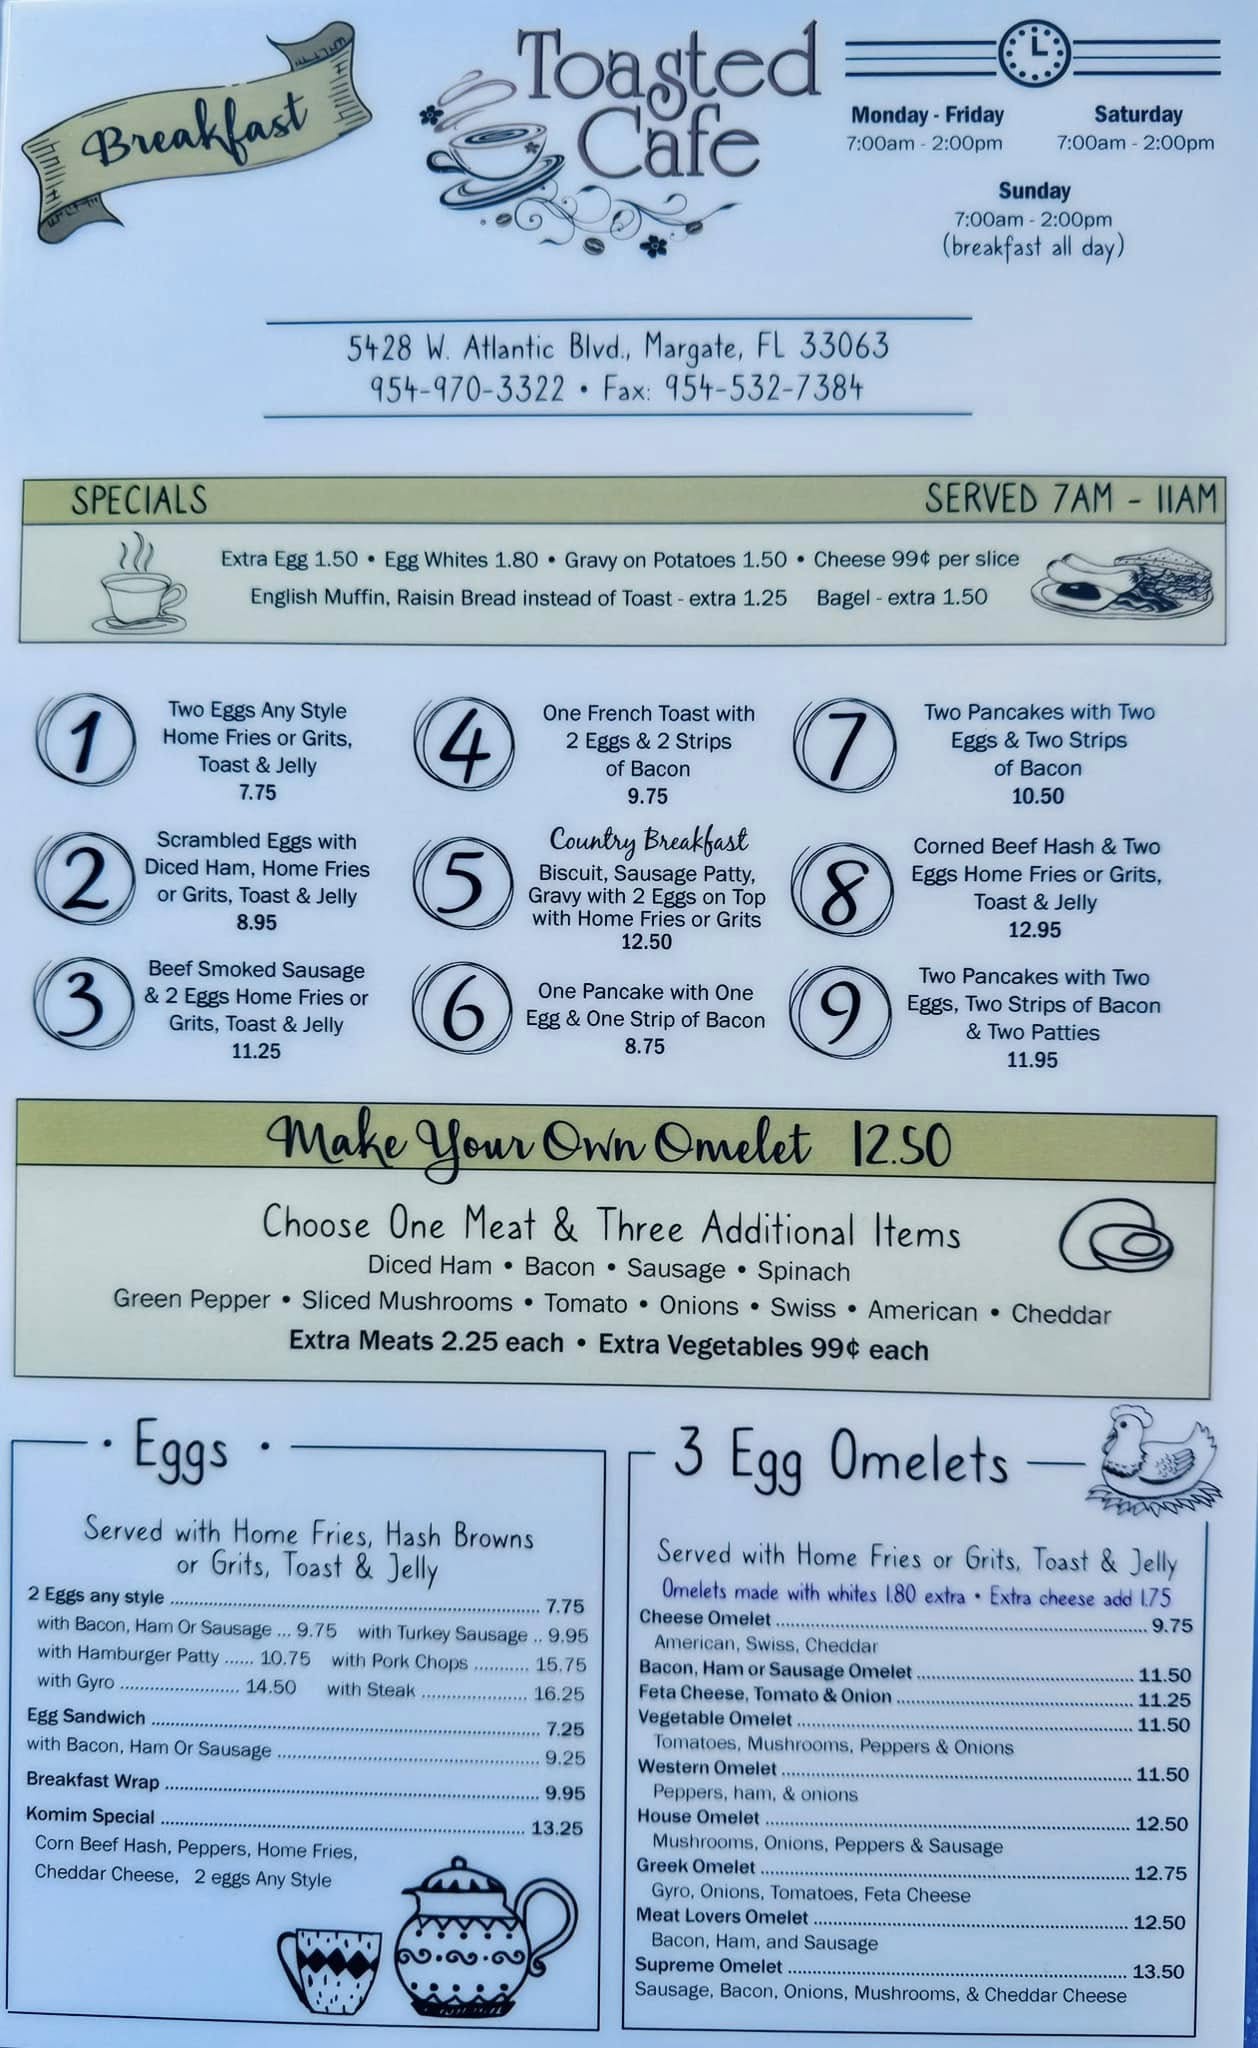 Breakfast
Toasted
Cafe
Monday - Friday
7:00am - 2:00pm
Saturday
7:00am - 2:00pm
Sunday
7:00am - 2:00pm
(breakfast all day)
5428 W. Atlantic Blvd., Margate, FL 33063
954-970-3322 • Fax: 954-532-7384
SPECIALS
SERVED 7AM - 11AM
Extra Egg 1.50 • Egg Whites 1.80 • Gravy on Potatoes 1.50 • Cheese 99¢ per slice
English Muffin, Raisin Bread instead of Toast - extra 1.25 Bagel - extra 1.50
1
Two Eggs Any Style
Home Fries or Grits,
Toast & Jelly
7.75
2
Scrambled Eggs with
Diced Ham, Home Fries
or Grits, Toast & Jelly
8.95
3
Beef Smoked Sausage
& 2 Eggs Home Fries or
Grits, Toast & Jelly
11.25
4
One French Toast with
2 Eggs & 2 Strips
of Bacon
9.75
5
Country Breakfast
Biscuit, Sausage Patty,
Gravy with 2 Eggs on Top
with Home Fries or Grits
12.50
6
One Pancake with One
Egg & One Strip of Bacon
8.75
7
Two Pancakes with Two
Eggs & Two Strips
of Bacon
10.50
8
Corned Beef Hash & Two
Eggs Home Fries or Grits,
Toast & Jelly
12.95
9
Two Pancakes with Two
Eggs, Two Strips of Bacon
& Two Patties
11.95
Make Your Own Omelet 12.50
Choose One Meat & Three Additional Items
Diced Ham • Bacon • Sausage • Spinach
Green Pepper • Sliced Mushrooms • Tomato • Onions • Swiss • American • Cheddar
Extra Meats 2.25 each • Extra Vegetables 99¢ each
• Eggs •
Served with Home Fries, Hash Browns
or Grits, Toast & Jelly
2 Eggs any style ... 7.75
with Bacon, Ham Or Sausage ... 9.75 with Turkey Sausage .. 9.95
with Hamburger Patty ...... 10.75 with Pork Chops .......... 15.75
with Gyro ... 14.50 with Steak ... 16.25
Egg Sandwich ... 7.25
with Bacon, Ham Or Sausage ... 9.25
Breakfast Wrap ... 9.95
Komim Special ... 13.25
Corn Beef Hash, Peppers, Home Fries,
Cheddar Cheese, 2 eggs Any Style
3 Egg Omelets
Served with Home Fries or Grits, Toast & Jelly
Omelets made with whites 1.80 extra • Extra cheese add 1.75
Cheese Omelet ... 9.75
American, Swiss, Cheddar
Bacon, Ham or Sausage Omelet ... 11.50
Feta Cheese, Tomato & Onion ... 11.25
Vegetable Omelet ... 11.50
Tomatoes, Mushrooms, Peppers & Onions
Western Omelet ... 11.50
Peppers, ham, & onions
House Omelet ... 12.50
Mushrooms, Onions, Peppers & Sausage
Greek Omelet ... 12.75
Gyro, Onions, Tomatoes, Feta Cheese
Meat Lovers Omelet ... 12.50
Bacon, Ham, and Sausage
Supreme Omelet ... 13.50
Sausage, Bacon, Onions, Mushrooms, & Cheddar Cheese